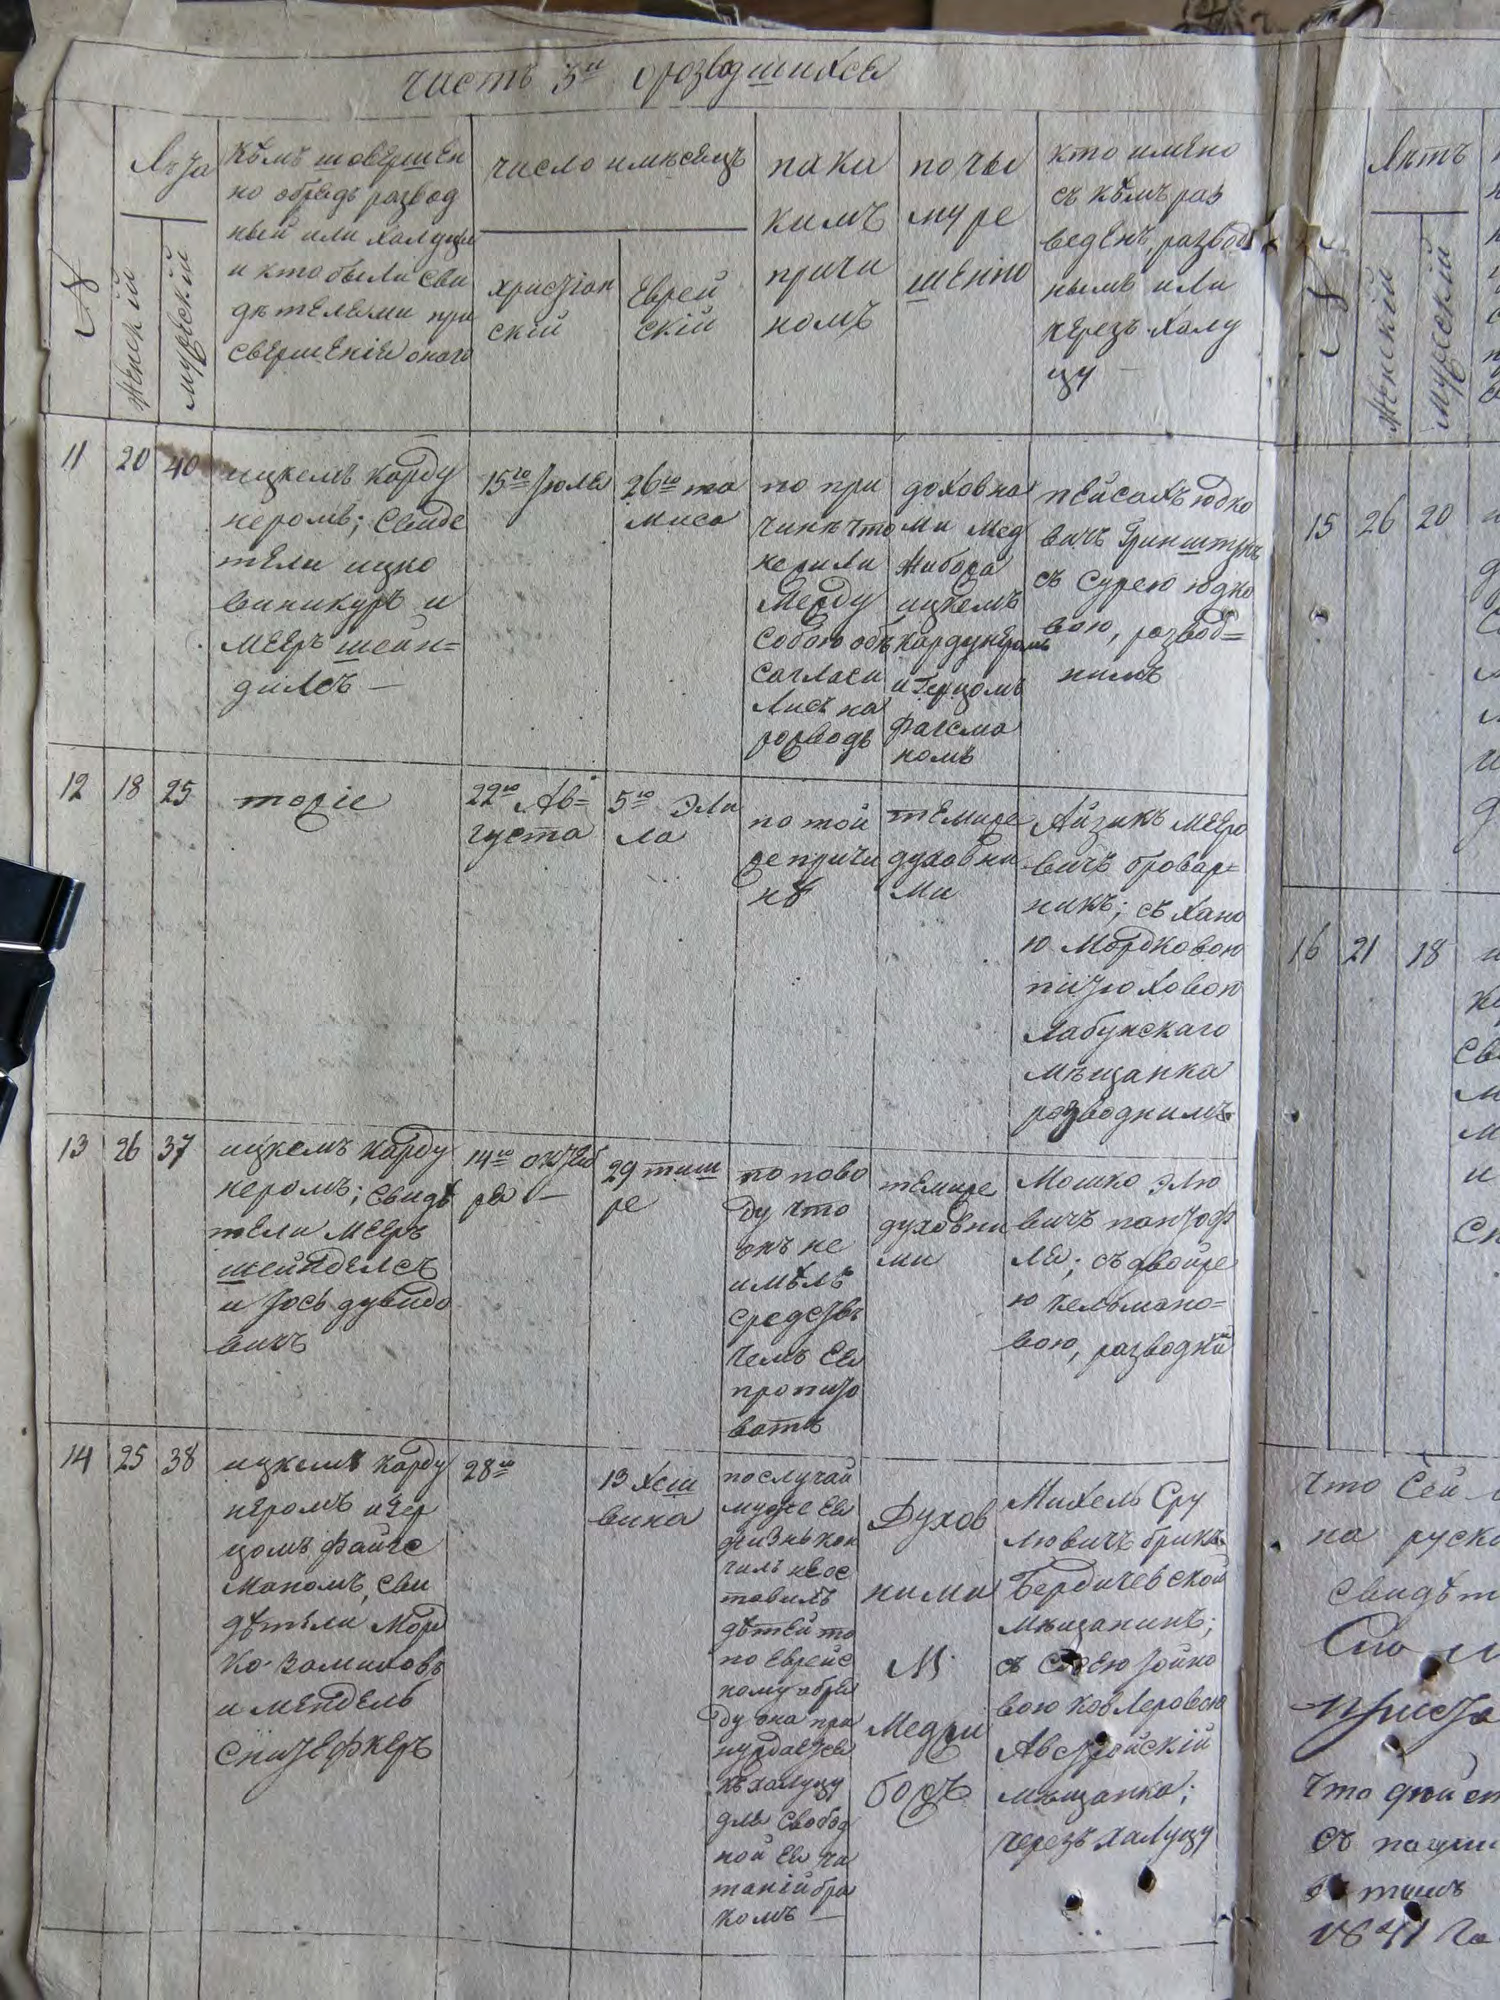 часть 3я о розводшихся
№
Лѣта
Женскій
мужескій
Кѣмъ шовершен
но обрядъ развод
ный или халуцы
и кто были сви
дѣтелями при
свершеніи онаго
число имѣсяцъ
христіан
скій
Еврей
скій
пока
кимъ
причи
номъ
по чье
му ре
шенію
кто имено
съ кѣмъ раз
веденъ, развод
нымъ или
черезъ халу
цу
11
20
40
ицкемъ Карду
неромъ; Свиде
тели ицко
виникуръ и
мееръ шеин=
дилсъ —
15го Іюля
26го та
миса
по при
чинѣ что
нежили
между
собою объ
согласи
лись на
розводъ
доховна
ми мед
жибожа
ицкемъ
кардунеромъ
и Герцомъ
файсма
номъ
пейсахъ юдко
вичъ Гринштукъ
съ Сурею юдко
вою, розвод=
нимъ
12
18
25
тоже
22го Ав=
густа
5го Эли
ла
по той
же причи
нѣ
темиже
духовни
ми
Айзикъ Мееро
вичъ бровар=
никъ; съ хано
ю Мордковою
Лабунскаго
мѣщанка
розводнимъ
13
26
37
ицкемъ Карду
неромъ; Свидѣ
тели Мееръ
шейнделсъ
и Іось дувидо
вичъ
14го октяб
ря —
29 тиш
ре
по пово
ду что
онъ не
имѣлъ
средствъ
чемъ ея
пропито
вать
темиже
духовни
ми
Мошко Элю
вичъ пантоф
ля; съ двойре
ю челмано=
вою, разводни
14
25
38
ицкемъ Карду
неромъ игер
цомъ файс
маномъ, Сви
дѣтели Морд
ко Замиховъ
и мендель
Спитефкеръ
28го
13 Хеш
вина
послучай
мужъ ея
жизнь кон
чилъ неос
тавилъ
дѣтей то
по еврейс
кому обря
ду она при
нуждается
къ халуцу
для свобод
ной ея ча
таній бра
комъ —
Духов
ними
М.
Меджи
божъ
Михель Сру
лювичъ брикъ
Бердичевской
мѣщанинъ;
съ Сосею Іойно
вою ковлеровою
Австрійскій
мѣщанка;
черезъ халуцу
№
Лѣтъ
Женскій
мужеский
15
26
20
16
21
18
что Сей
на руско
свидѣт
Сію
что дѣйст
1841 Го